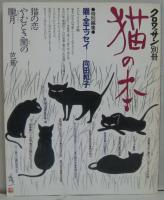 クロワッサン別冊
猫の本
●特別編集●
猫・全エッセイ
向田邦子
猫の恋
やむとき閨の
朧月
芭蕉